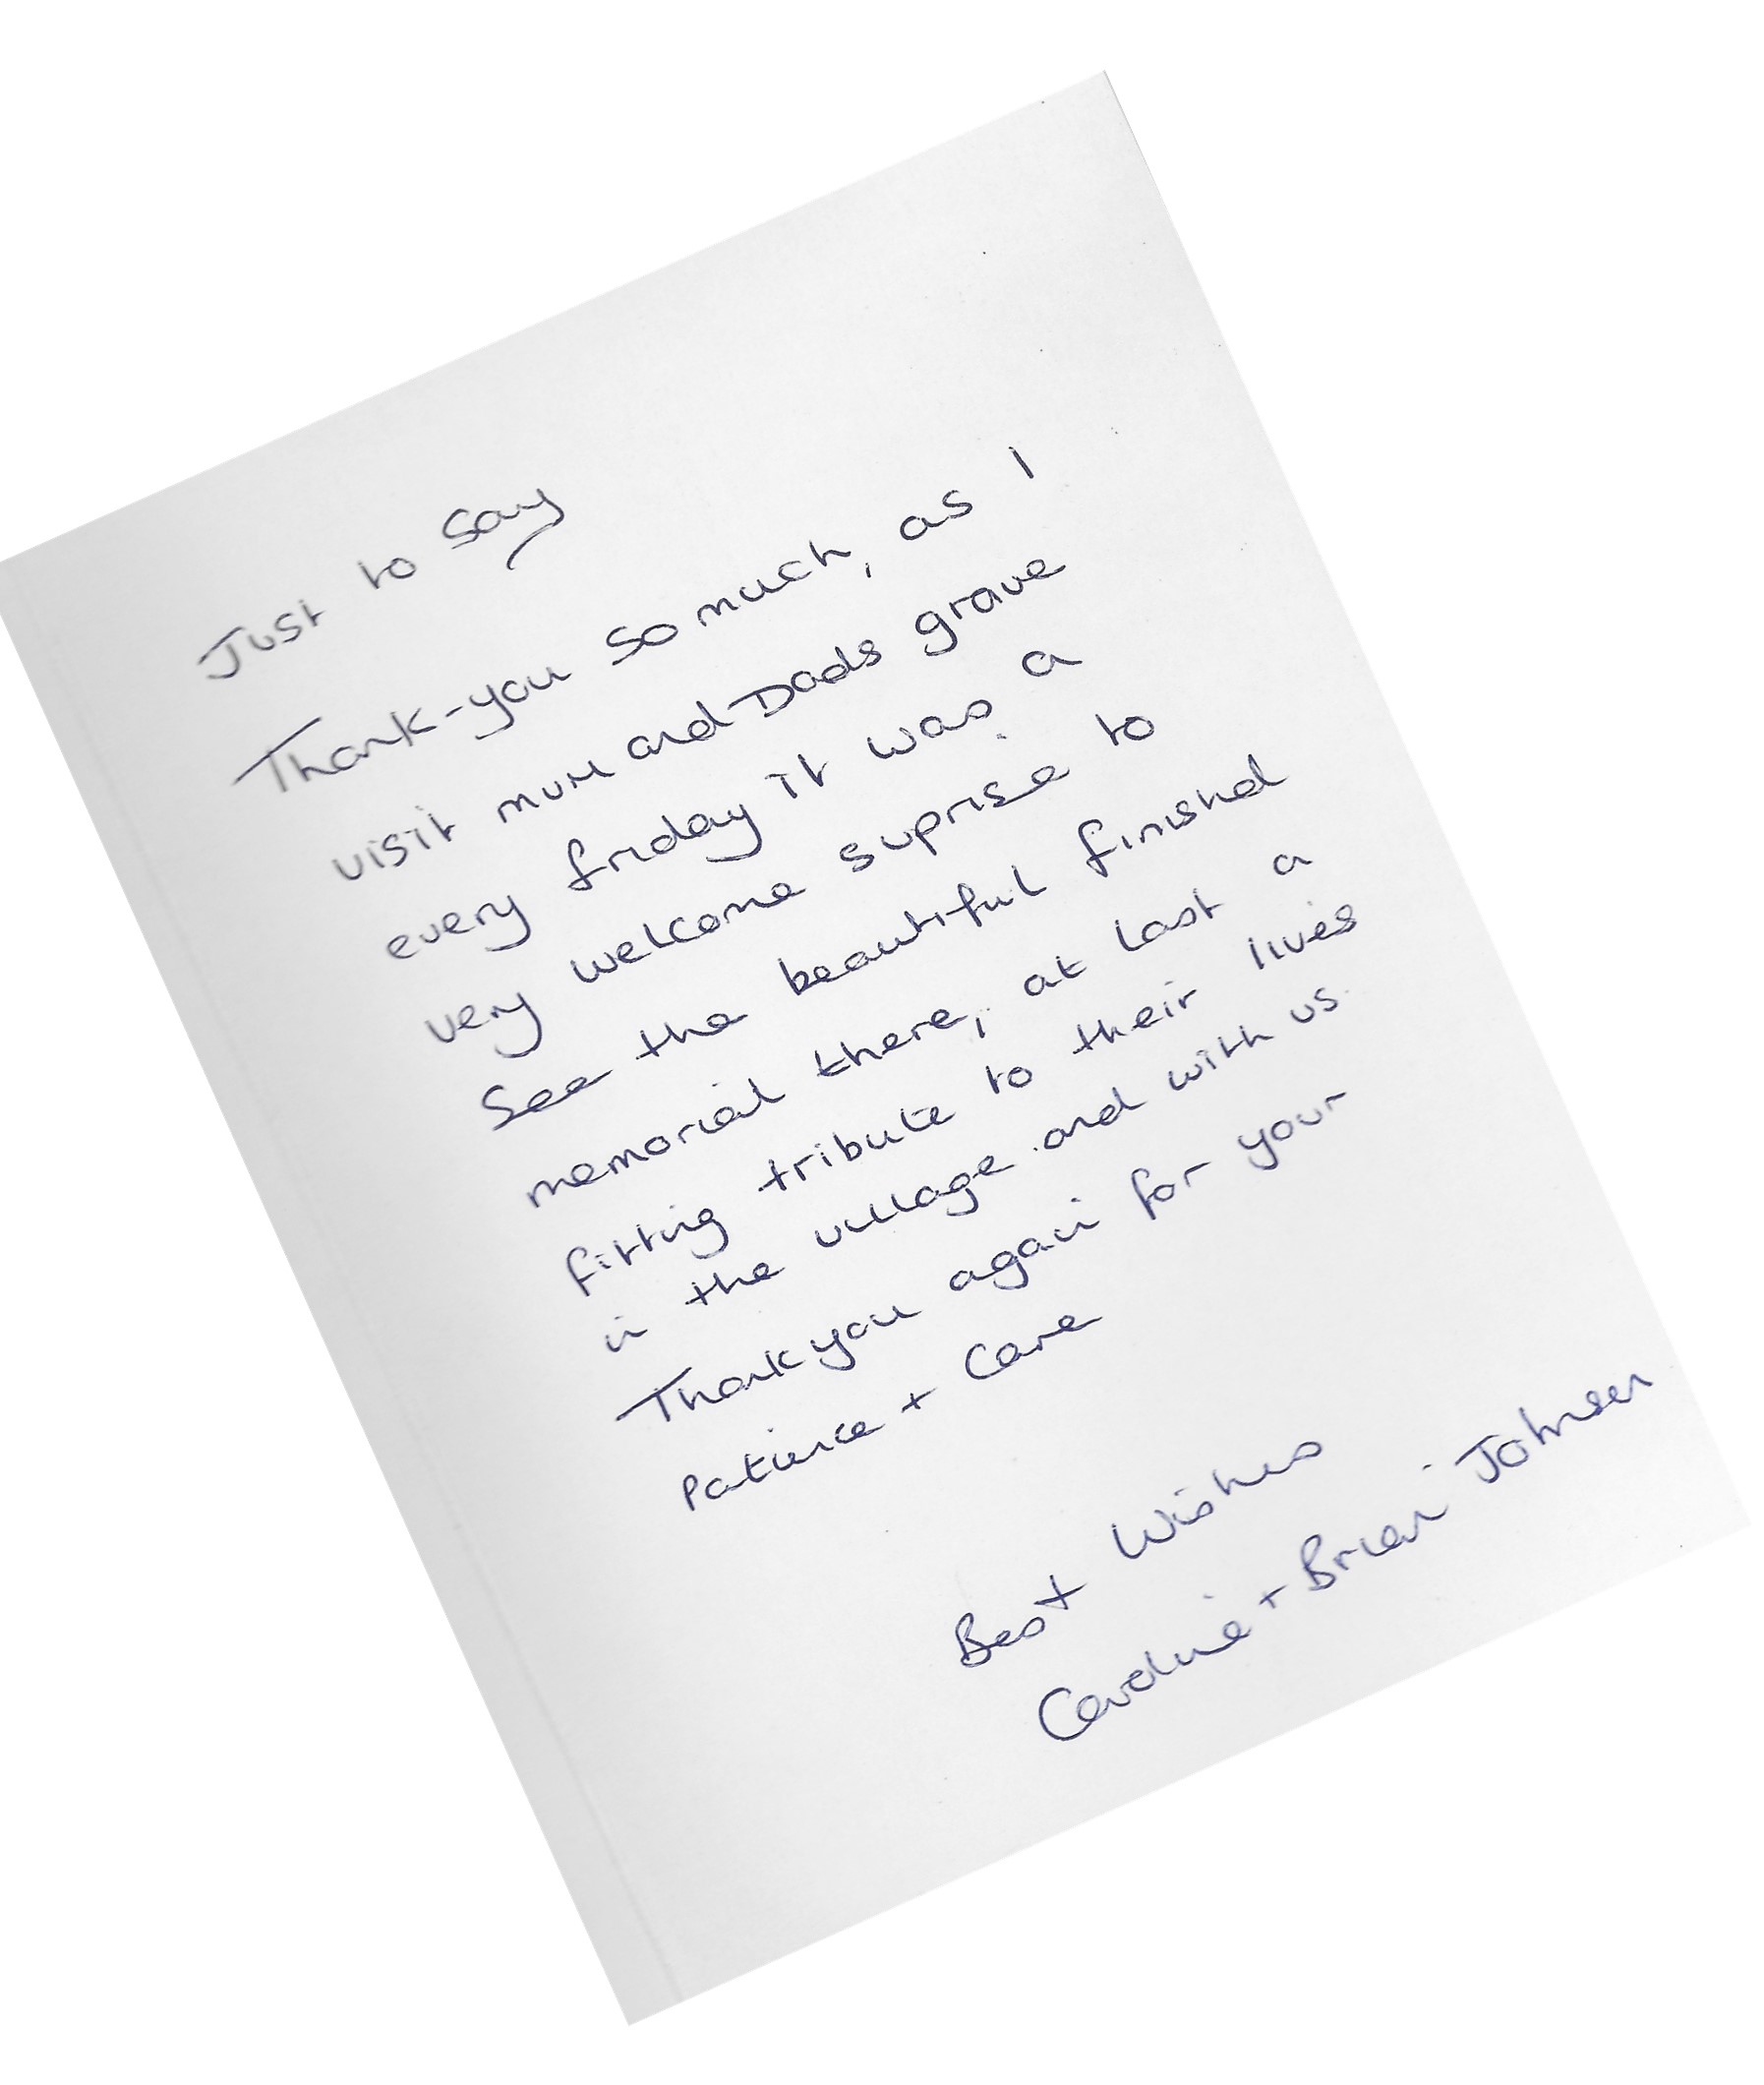 Just to say
Thank-you so much, as I
visit mum and Dads grave
every friday it was a
very welcome suprise to
See the beautiful finished
memorial there, at last a
fitting tribute to their lives
in the village and with us.
Thankyou again for your
Patience + Care
Best Wishes
Caroline + Brian Johnson